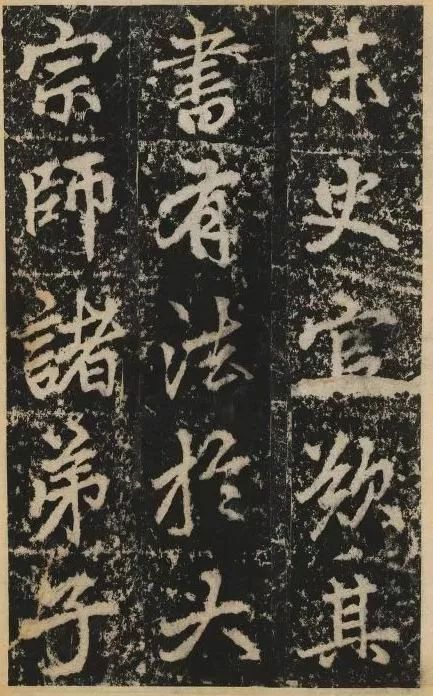 未史官欲其
書有法於大
宗師諸弟子